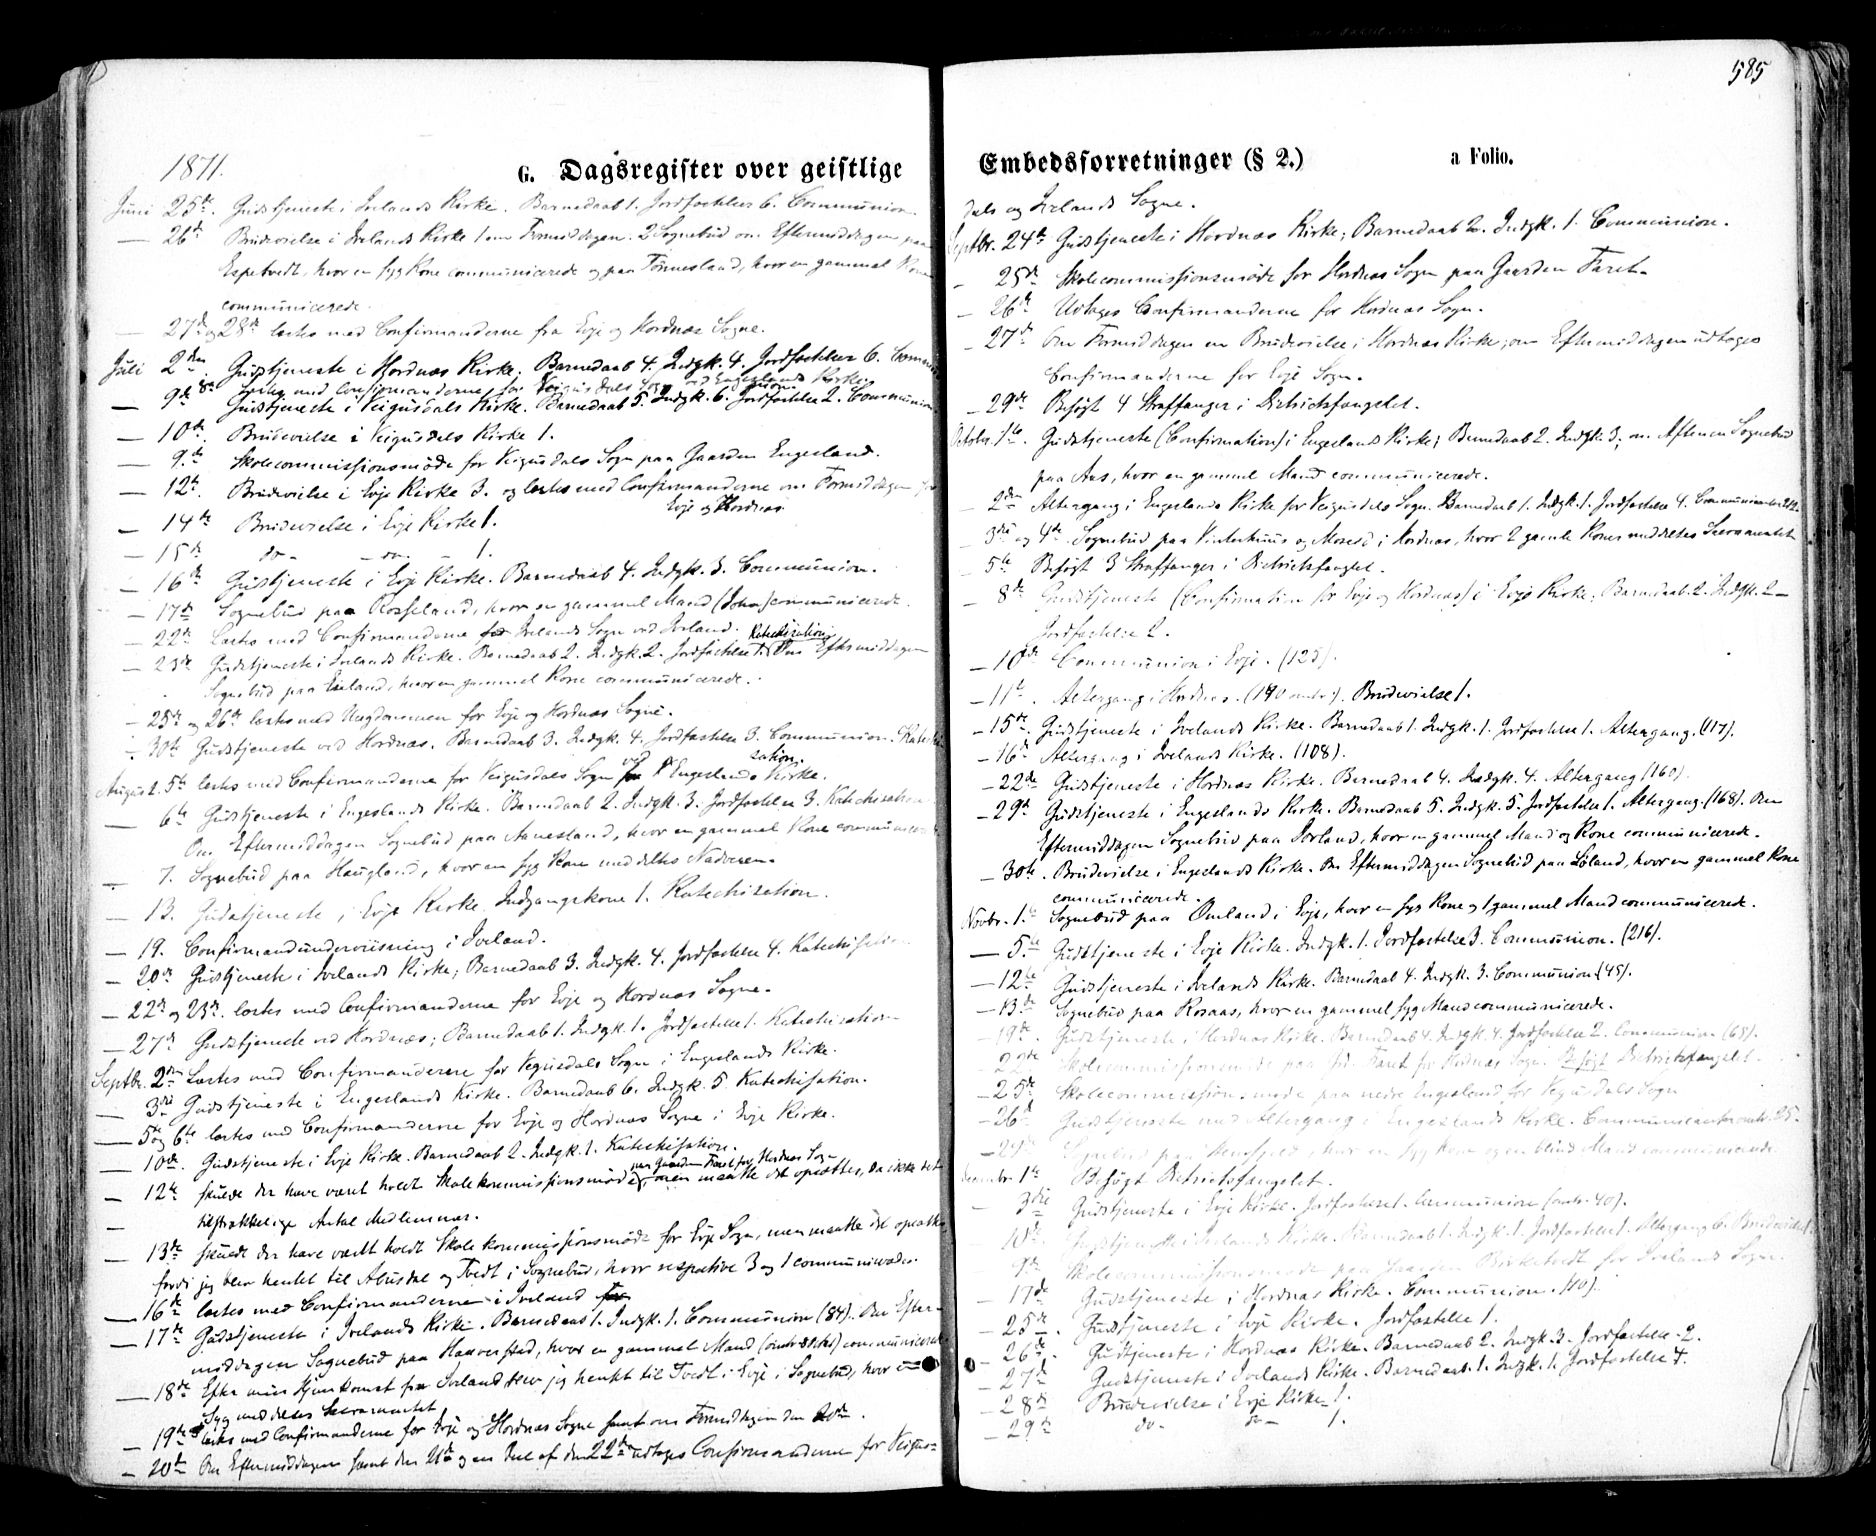 585
1871.
G. Dagsregister over geistlige
Juni 25de. Gudstjeneste i Ivelands Kirke. Barnedaab 1. Jordfæstelser 6. Communion.
— 26de Brudevielse i Ivelands Kirke 1 om Formiddagen. 2 Sognebud om Eftermiddagen paa
Espetvedt, hvor en syg Kone communicerede og paa Tønnesland, hvor en gammel Kone
communicerede.
— 27de og 28de læstes med Confirmanderne fra Evje og Hordnæs Sogne.
Juli 2den Gudstjeneste i Hordnæs Kirke. Barnedaab 4. Indgk. 4. Jordfæstelser 6. Communion.
8de Læstes med Confirmanderne for Veigusdals Sogn ved Engeslands Kirke.
— 9de Gudstjeneste i Veigusdals Kirke. Barnedaab 5. Indgk. 6. Jordfæstelse 2. Communion
— 10de. Brudevielse i Veigusdals Kirke 1.
— 9de. Skolecommissionsmøde for Veigusdals Sogn paa Gaarden Engesland.
— 12te. Brudevielse i Evje Kirke 3. og læstes med Confirmanderne om Formiddagen
Evje og Hordnæs
— 14de Brudevielse i Evje Kirke 1.
— 15de do - - do - 1.
— 16de Gudstjeneste i Evje Kirke. Barnedaab 4. Indgk. 3. Communion.
— 17de Sognebud paa Rosseland, hvor en gammel Mand (John) communicerede.
— 22de Læstes med Confirmanderne for Ivelands Sogn ved Iveland.
— 23de Gudstjeneste i Ivelands Kirke. Barnedaab 2. Indgk. 2. Jordfæstelse 1. Katechisation. Om Eftermiddagen
Sognebud paa Eieland, hvor en gammel Kone communicerede.
— 25de og 26de læstes med Ungdommen for Evje og Hordnæs Sogne.
— 30te Gudstjeneste ved Hordnæs. Barnedaab 3. Indgk. 4. Jordfæstelse 3. Communion. Katechi-
sation.
August. 5te læstes med Confirmanderne for Veigusdals Sogn ved Engeslands Kirke.
— 6te Gudstjeneste i Engeslands Kirke. Barnedaab 2. Indgk. 3. Jordfæstelse 3. Katechisation.
Om Eftermiddagen Sognebud paa Aanesland, hvor en gammel Kone communicerede
— 7. Sognebud paa Haugland, hvor en syg Kone meddeltes Nadveren.
— 13. Gudstjeneste i Evje Kirke. Indgangskone 1. Katechisation.
— 19. Confirmandunderviisning i Iveland.
— 20de Gudstjeneste i Ivelands Kirke; Barnedaab 3. Indgk. 4. Jordfæstelse 4. Katechisation
— 22de og 23de. læstes med Confirmanderne for Evje og Hordnæs Sogne.
— 27de Gudstjeneste ved Hordnæs; Barnedaab 1. Indgk. 1. Jordfæstelse 1. Katechisation
Septbr. 2den Læstes med Confirmanderne for Vegusdals Sogn i Engeslands Kirke.
— 3die Gudstjeneste i Engeslands Kirke. Barnedaab 6. Indgk. 5 Katechisation.
— 5te og 6te læstes med Confirmanderne for Evje og Hordnæs Sogne i Evje Kirke.
— 10de. Gudstjeneste i Evje Kirke. Barnedaab 2. Indgk. 1. Katechisation.
paa Gaarden Faret for Hordnæs Sogn
— 12te skulde der have været holdt Skolekommissionsmøde, men maatte det opsættes, da ikke det
tilstrækkelige Antal Medlemmer.
— 13de skulde der have været holdt Skolekommissionsmøde for Evje Sogn, men maatte det opsættes,
fordi jeg blev hentet til Abusdal og Tvedt i Sognebud, hvor respective 3 og 1 communicerede.
— 16de læstes med Confirmanderne i Iveland
— 17de Gudstjeneste i Ivelands Kirke. Barnedaab 1. Indgk. 1. Communion (84). Om Efter-
middagen Sognebud paa Haaverstad, hvor en gammel Mand communicerede
— 18de Efter min Hjemkomst fra Iveland blev jeg hentet til Tvedt i Evje i Sognebud, hvor en
Syg meddeltes Sacramentet
— 19de læstes med Confirmanderne for Evje og Hordnæs Sogne samt om Formiddagen den 20de.
— 20de Om Eftermiddagen samt den 21de og en Deel af den 22de udtoges Confirmanderne for Veigus-
Embedsforretninger (§ 2.)
a Folio.
dals og Ivelands Sogne.
Septbr. 24de Gudstjeneste i Hordnæs Kirke; Barnedaab 2. Indgk. 1. Communion.
— 25de Skolecommissionsmøde for Hordnæs Sogn paa Gaarden Faret.
— 26de Udtoges Confirmanderne for Hordnæs Sogn.
— 27de Om Formiddagen en Brudevielse i Hordnæs Kirke; om Eftermiddagen udtoges
Confirmanderne for Evje Sogn.
— 29de Besøgt 4 Straffanger i Districtsfængslet.
Octobr. 1ste. Gudstjeneste (Confirmation) i Engeslands Kirke; Barnedaab 2. Indgk. 3; om Aftenen Sognebud
paa Aas, hvor en gammel Mand communicerede.
— 2den Altergang i Engeslands Kirke for Veigusdals Sogn. Barnedaab 1. Indgk. 1. Jordfæstelse 4. Communicanter 212.
— 3die og 4de. Sognebud paa Vinterhuus og Moseid i Hordnæs, hvor 2 gamle Koner meddeltes Sacramentet
— 5te Besøgt 3 Straffanger i Districtsfængslet.
— 8de Gudstjeneste (Confirmation for Evje og Hordnæs) i Evje Kirke; Barnedaab 2. Indgk. 2 —
Jordfæstelse 2.
— 10de Communion i Evje. (125).
— 11te. Altergang i Hordnæs. (190 omtr.). Brudevielse 1.
— 15de. Gudstjeneste i Ivelands Kirke. Barnedaab 1. Indgk. 1. Jordfæstelse 1. Altergang. (117).
— 16de Altergang i Ivelands Kirke. (108).
— 22de Gudstjeneste i Hordnæs Kirke. Barnedaab 4. Indgk. 4. Altergang (160).
— 29de Gudstjeneste i Engeslands Kirke. Barnedaab 5. Indgk. 5. Jordfæstelse 1. Altergang. (168). Om
Eftermiddagen Sognebud paa Iveland, hvor en gammel Mand og Kone communicerede.
— 30te. Brudevielse i Engeslands Kirke. Om Eftermiddagen Sognebud paa Løland, hvor en gammel Kone
communicerede.
Novbr. 1ste Sognebud paa Omland i Evje, hvor en syg Kone og 1 gammel Mand communicerede.
— 5te Gudstjeneste i Evje Kirke. Indgk. 1. Jordfæstelse 3. Communion. (216).
— 12te Gudstjeneste i Ivelands Kirke. Barnedaab 4. Indgk. 3. Communion (45).
— 13de Sognebud paa Rosaas, hvor en gammel syg Mand communicerede.
19de. Gudstjeneste i Hordnæs Kirke. Barnedaab 4. Indgk. 4. Jordfæstelse 2. Communion (65).
22de Skolecommissionsmøde paa Faret for Hordnæs Sogn. Besøgt Districtsfængslet.
— 25de Skolecommissionsmøde paa nedre Engesland for Vegusdals Sogn
— 26de Gudstjeneste med Altergang i Engeslands Kirke. Communicanter omtr. 25.
— 29de Sognebud paa, hvor en syg Kone og en blind Mand communicerede.
Decembr. 1ste Besøgt Districtsfængslet.
— 3die Gudstjeneste i Evje Kirke. Jordfæstelse 1. Communion (omtr. 40).
10de. Gudstjeneste i Ivelands Kirke. Barnedaab 1. Indgk. 1. Jordfæstelse 1. Altergang 6. Brudevielse 1
9de Skolecommissionsmøde paa Gaarden Birketvedt for Ivelands Sogn.
— 17de Gudstjeneste i Hordnæs Kirke. Communion. (10).
— 25de. Gudstjeneste i Evje Kirke. Jordfæstelse 1.
— 26de. Gudstjeneste i Hordnæs Kirke. Barnedaab 2. Indgk. 3. Jordfæstelse 2.
— 27de Gudstjeneste i Ivelands Kirke. Barnedaab 1. Indgk. 1. Jordfæstelse 4.
— 28de Brudevielse i Evje Kirke 1.
— 29de do - do - 1.